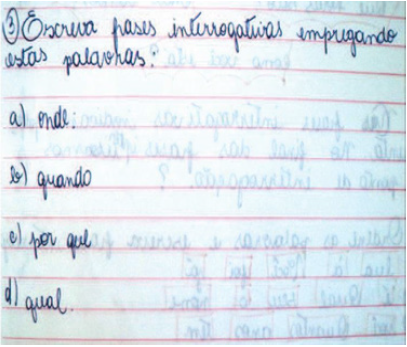 3) Escreva frases interrogativas empregando
estas palavras:
a) onde:
b) quando
c) por que
d) qual.